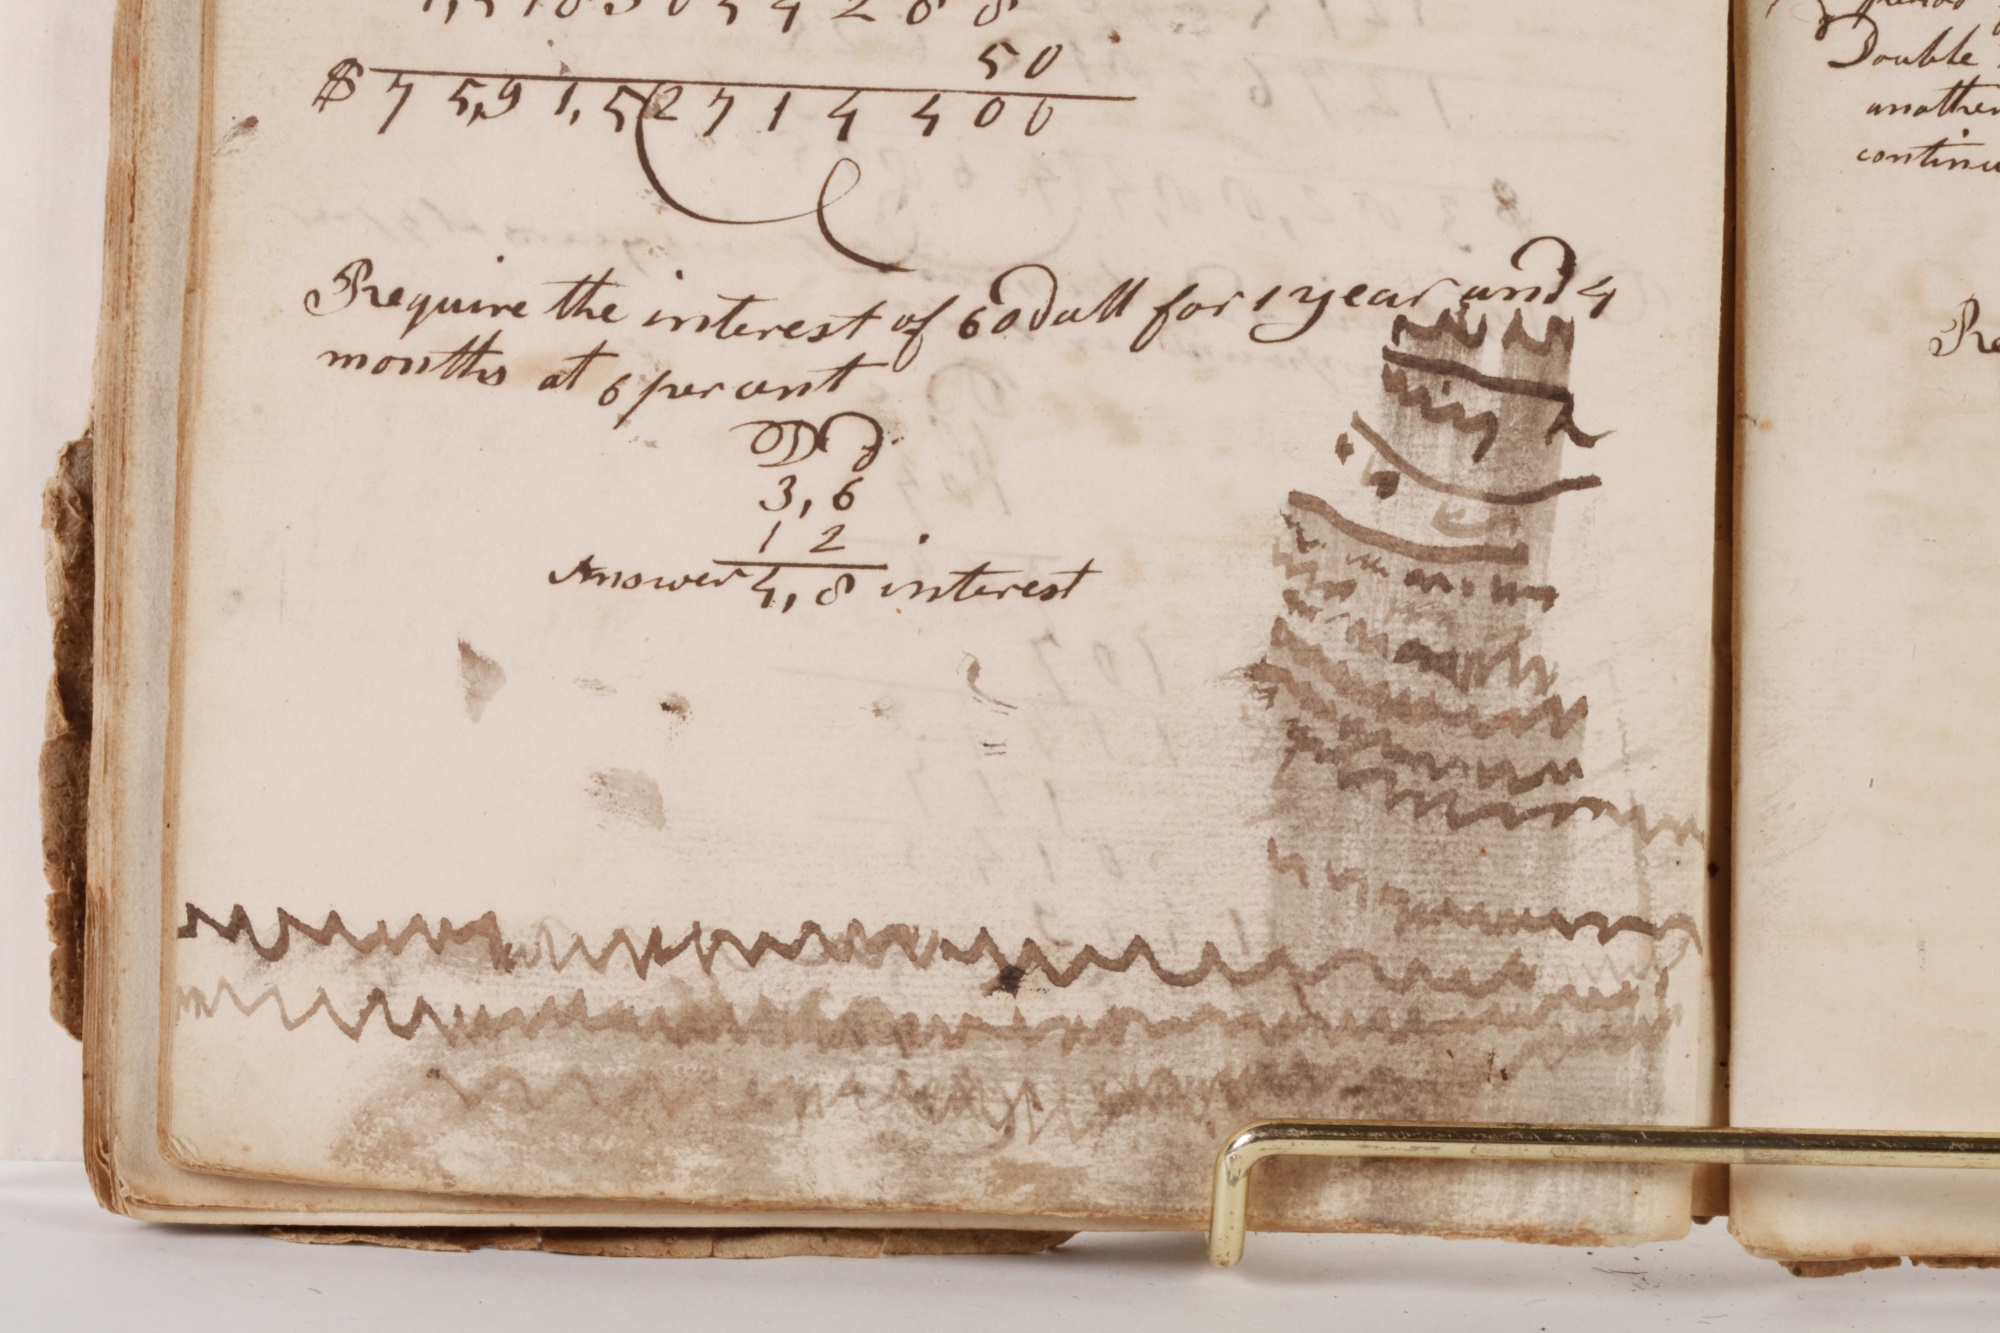 50
$ 7 5,9 1,5 2 7 1 4 4 0 0
Require the interest of 60 doll for 1 year and 4
months at 6 per cent
D d
3, 6
1 2
Answer 4, 8 interest
Double
another